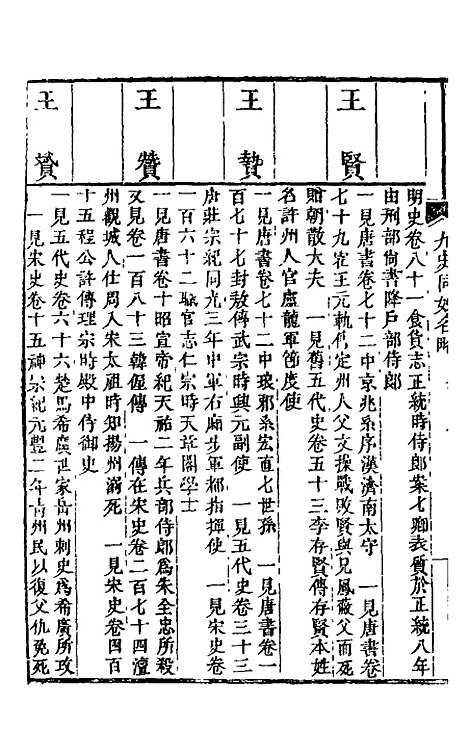 九史同姓名略
明史卷八十一食貨志正統時侍郎案七卿表質於正統八年
由刑部尚書降戶部侍郎
王賢
一見唐書卷七十二中京兆系序漢濟南太守 一見唐書卷
七十九霍王元軌傳定州人父文操戰敗賢與兄鳳蔽父而死
贈朝散大夫 一見舊五代史卷五十三李存賢傳存賢本姓
名許州人官盧龍軍節度使
王贄
一見唐書卷七十二中琅邪系宏直七世孫 一見唐書卷一
百七十七封敖傳武宗時興元副使 一見五代史卷三十三
唐莊宗紀同光三年中軍右廂步軍都指揮使 一見宋史卷
一百六十二職官志仁宗時天章閣學士
王贊
一見唐書卷十昭宣帝紀天祐二年兵部侍郎為朱全忠所殺
又見卷一百八十三韓偓傳 一傳在宋史卷二百七十四澶
州觀城人仕周入宋太祖時知揚州溺死 一見宋史卷四百
十五程公許傳理宗時殿中侍御史
王贇
一見五代史卷六十六楚馬希廣世家岳州刺史為希廣所攻
一見宋史卷十五神宗紀元豐二年青州民以復父仇免死